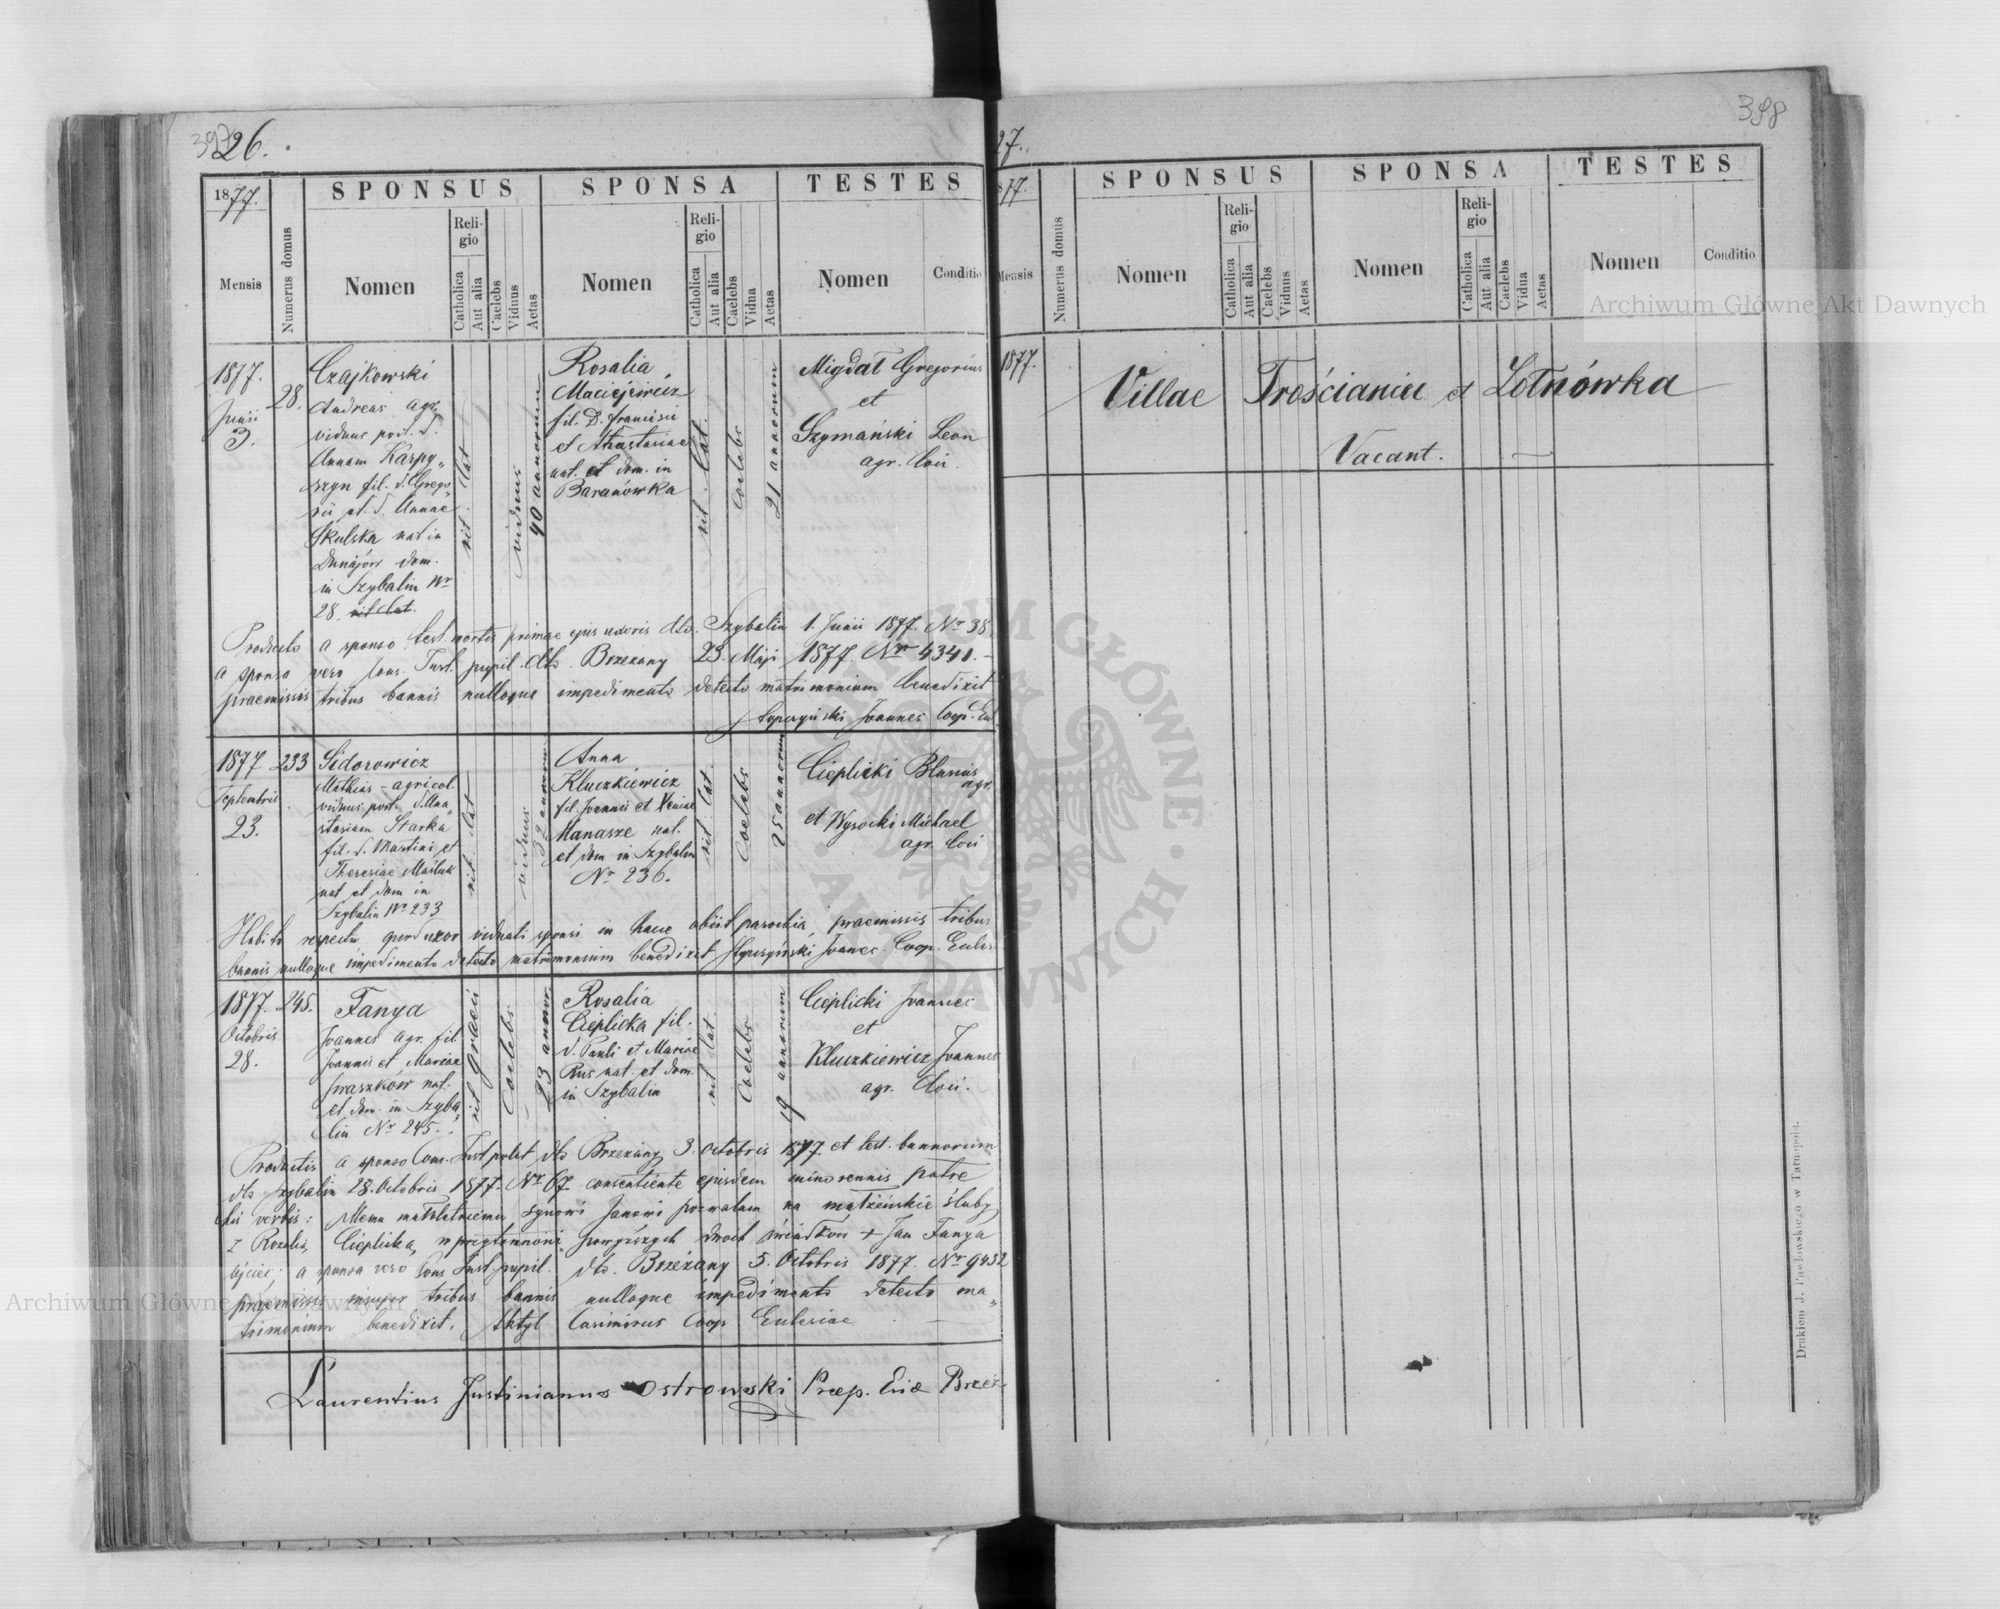 397
26.
1877.
Mensis
Numerus domus
SPONSUS
Nomen
Religio
Catholica
Aut alia
Caelebs
Viduus
Aetas
SPONSA
Nomen
Religio
Catholica
Aut alia
Caelebs
Vidua
Aetas
TESTES
Nomen
Conditio
1877.
Junii
3.
28.
Czajkowski
Andreas agr.
viduus post. d.
Annam Karpy„
szyn fil. d. Grego„
rii et d. Annae
Skulska nat in
Dunajów dom.
in Szybalin Nr
28. rit lat.
rit. lat
viduus
40 annorum
Rosalia
Maciejewicz
fil. D. Francisci
et Anastasiae
nat. et dom. in
Baranówka
rit. lat.
coelebs
21 annorum
Migdał Gregorius
et
Szymański Leon
agr. loci.
Producto a sponso test. mortis primae ejus uxoris dto. Szybalin 1. Junii 1877. Nr 38
a sponsa vero Cons. Inst. pupil. dto. Brzezany 23. Maji 1877. Nr 4341.-
praemissis tribus bannis nulloque impedimento detecto matrimonium benedixit
Joannes Coop. Eccl.
1877
Septembris
23.
233
Sidorowicz
Mathias - agricol.
viduus post. d. Ana„
stasiam Starka
fil. d. Martini et
Theresiae Maśluk
nat et dom in
Szybalin Nr 233
rit. lat
viduus
annorum
Anna
Kluczkiewicz
fil. Joannis et Xeniae
Manasze nat.
et dom in Szybalin
Nr 236.
rit. lat
Coelebs
25 annorum
Cieplicki Blasius
agr.
et Wysocki Michael
agr. loci
Habito respectu quod uxor viduati sponsi in hacce obiit parochia, praemissis tribus
bannis nulloque impedimento detecto matrimonium benedixit Joannes Coop. Eccles
1877.
Octobris
28.
245.
Fanya
Joannes agr. fil
Joannis et Mariae
Iwaszków nat.
et dom. in Szyba„
lin Nr 245.
rit graeci
Coelebs
23 annor.
Rosalia
Cieplicka fil.
d. Pauli et Mariae
Rus nat. et dom.
in Szybalin
rit lat
Coelebs
19 annorum
Cieplicki Joannes
et
Kluczkiewicz Joannes
agr. loci.
Productis a sponso Cons. Inst polit dto Brzezany 3. Octobris 1877. et test. bannorum
dto Szybalin 28. Octobris 1877. Nr 67 consentiente ejusdem minorennis patre
his verbis: Memu małoletniemu synowi Janowi pozwalam na małżeńskie śluby
z Rozalią Cieplicką w przytomności powyższych dwóch świadków + Jan Fanya
ojciec; a sponsa vero Cons Inst. pupil. dto. Brzeżany 5. Octobris 1877. Nr 9432
praemissis insuper tribus bannis nulloque impedimento detecto ma„
trimonium benedixit. Casimirus Coop Ecclesiae
Laurentius Justinianus Ostrowski Praep. Brzeż
398
27.
1877.
Mensis
Numerus domus
SPONSUS
Nomen
Religio
Catholica
Aut alia
Caelebs
Viduus
Aetas
SPONSA
Nomen
Religio
Catholica
Aut alia
Caelebs
Vidua
Aetas
TESTES
Nomen
Conditio
1877.
Villae Trościaniec et Lotnówka
Vacant.
Drukiem J. Pawłowskiego w Tarnopolu.
Archiwum Główne Akt Dawnych
Archiwum Główne Akt Dawnych
ARCHIWUM GŁÓWNE AKT DAWNYCH